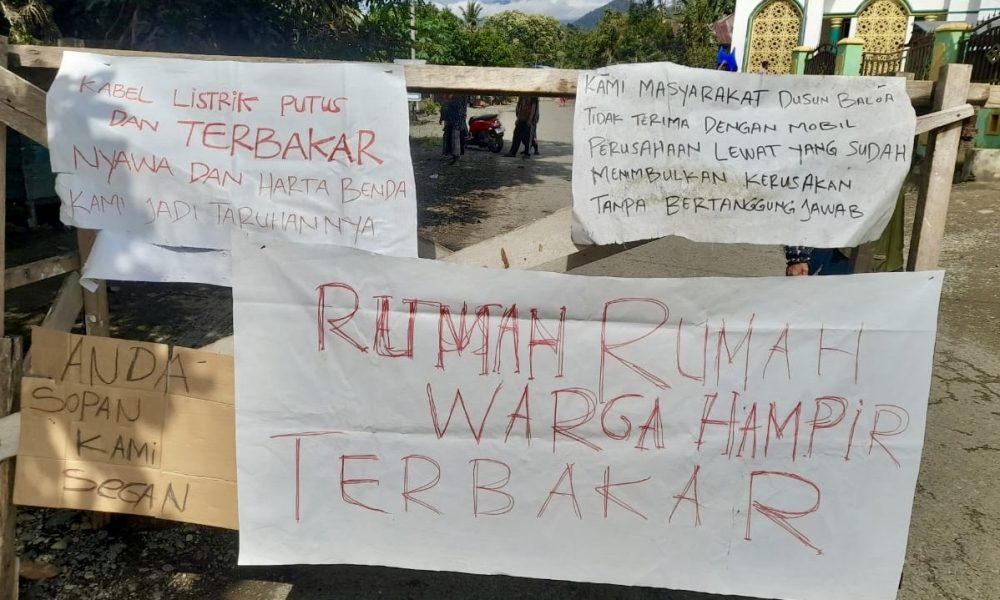 KABEL LISTRIK PUTUS
DAN TERBAKAR
NYAWA DAN HARTA BENDA
KAMI JADI TARUHANNYA
KAMI MASYARAKAT DUSUN BALOA
TIDAK TERIMA DENGAN MOBIL
PERUSAHAAN LEWAT YANG SUDAH
MENIMBULKAN KERUSAKAN
TANPA BERTANGGUNG JAWAB
RUMAH RUMAH
WARGA HAMPIR
TERBAKAR
ANDA
SOPAN
KAMI
SEGAN